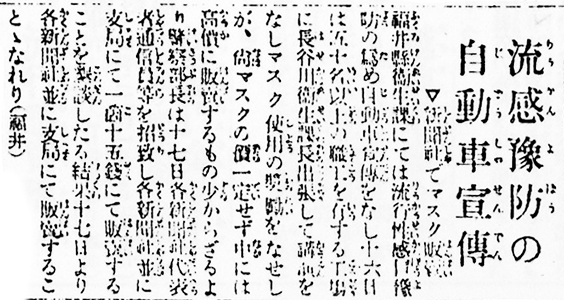 流感豫防の
自動車宣傳
▽新聞社でマスク販賣
福井縣衞生課にては流行性感冒豫
防の爲め自動車宣傳をなし十六日
は五十名以上の職工を有する工場
に長谷川衞生課長出張して講話を
なしマスク使用の奬勵をなせし
が、尙マスクの價一定せず中には
高價に販賣するもの少からざるよ
り警察部長は十七日各新聞社代表
者通信員等を招致し各新聞社並に
支局にて一箇十五錢にて販賣する
ことを懇談したる結果十七日より
各新聞社並に支局にて販賣するこ
とゝなれり(福井)